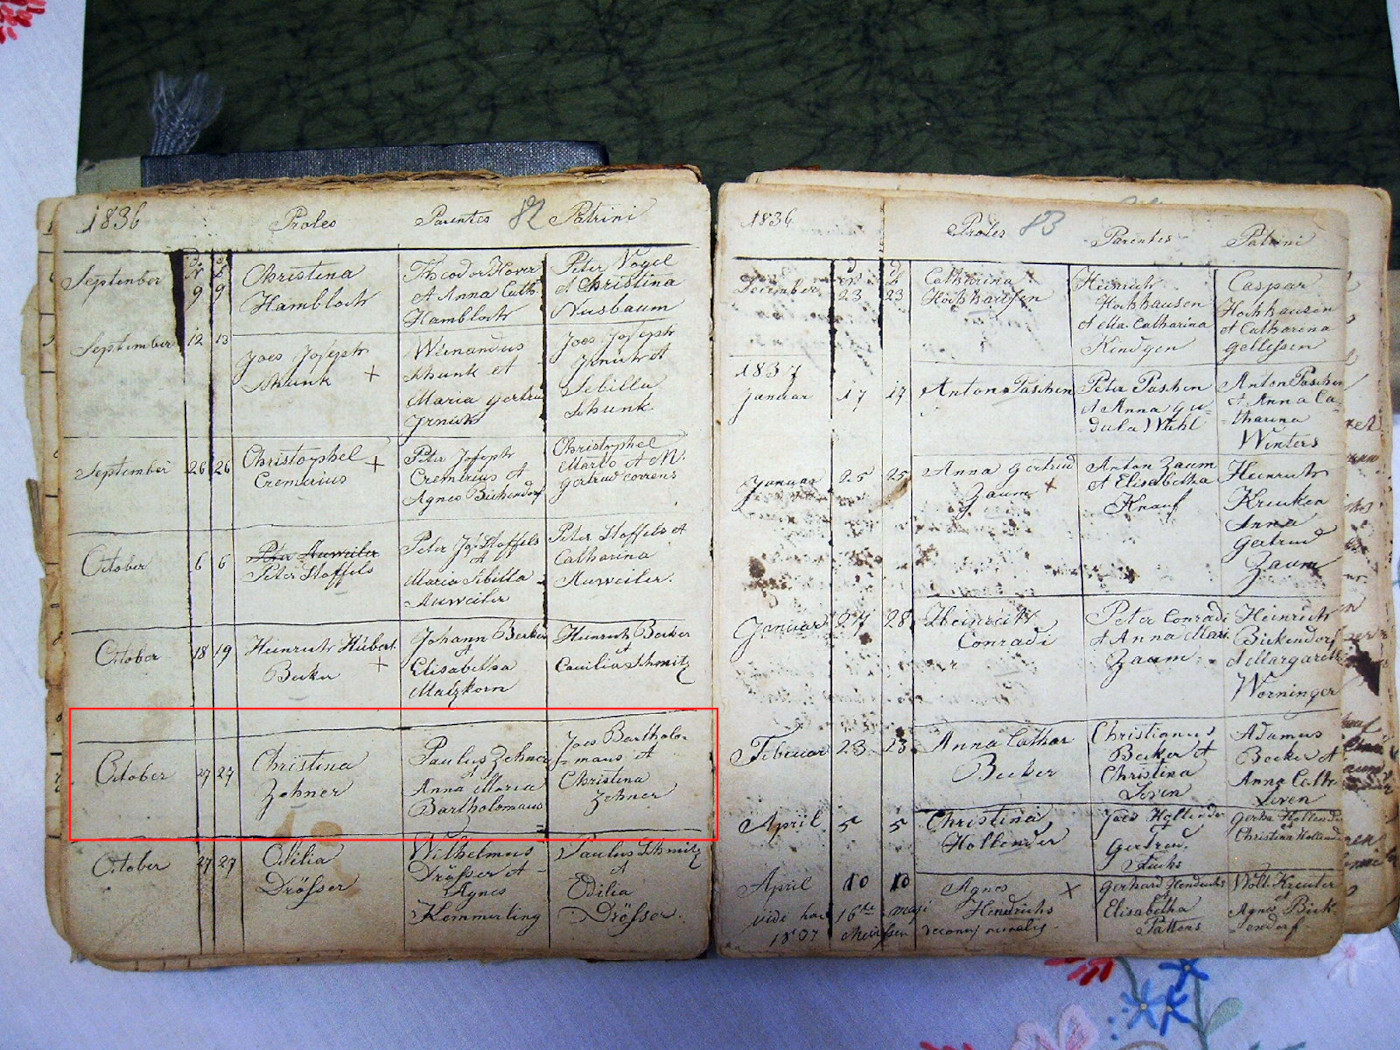 1836 Proles Parentes 82 Patrini
September 9 9 Christina Hambloch
Theodor Hover et Anna Cath. Hambloch
Peter Vogel et Christina Nusbaum
September 12 13 Joes Joseph Schunk +
Wienandus Schunk et Maria Gertru
Joes Joseph et Sibilla Schunk
September 26 26 Christophel Cremerius +
Peter Joseph Cremerius et Agnes Bickendorf
Christophel et M. Gertrud Correns
October 6 6 Peter Auweiler Peter Stoffels
Peter Jos Stoffels et Maria Sibilla Auweiler
Peter Stoffels et Catharina Auweiler.
October 18 19 Heinrich Hubert Becker +
Johann Becker et Elisabetha Malzkorn
Heinrich Becker et Caecilia Schmitz
October 27 27 Christina Zehner
Paulus Zehner et Anna Maria Bartholomaus
Joes Bartholo-maus et Christina Zehner
October 27 27 Odilia Drösser
Wilhelmus Drösser et Agnes Kemmerling
Paulus Schmitz et Odilia Drösser.
1836 Proles 83 Parentes Patrini
December 23 23 Catharina
Heinrich Hochhausen et Ma. Catharina Kindgen
Caspar Hochhausen et Catharina Gellessen
1837
Januar 17 17 Anton Paschen
Peter Paschen et Anna Gu-dula Wahl
Anton Paschen et Anna Ca-tharina Winters
Januar 25 25 Anna Gertrud Zaum +
Anton Zaum et Elisabetha Knauf
Heinrich Kreuken Anna Gertrud Zaum
Januar 27 28 Heinrich Conradi
Peter Conradi et Anna Mari Zaum
Heinrich Bickendorf et Margareth Worninger
Februar 23 Anna Cathar Becker
Christianus Becker et Christina Leven
Adamus Becker et Anna Cath. Leven
April 5 5 Christina Hollender
Joes Hollender et Gertrud. Fuchs
Gerha Hollender et Christina Hollend
April 10 10 Agnes Hendrichs +
Gerhard Hendrichs Elisabetha Pattens
Kreuter et Agnes Bick-endorf
vide hac 16te maji
1837